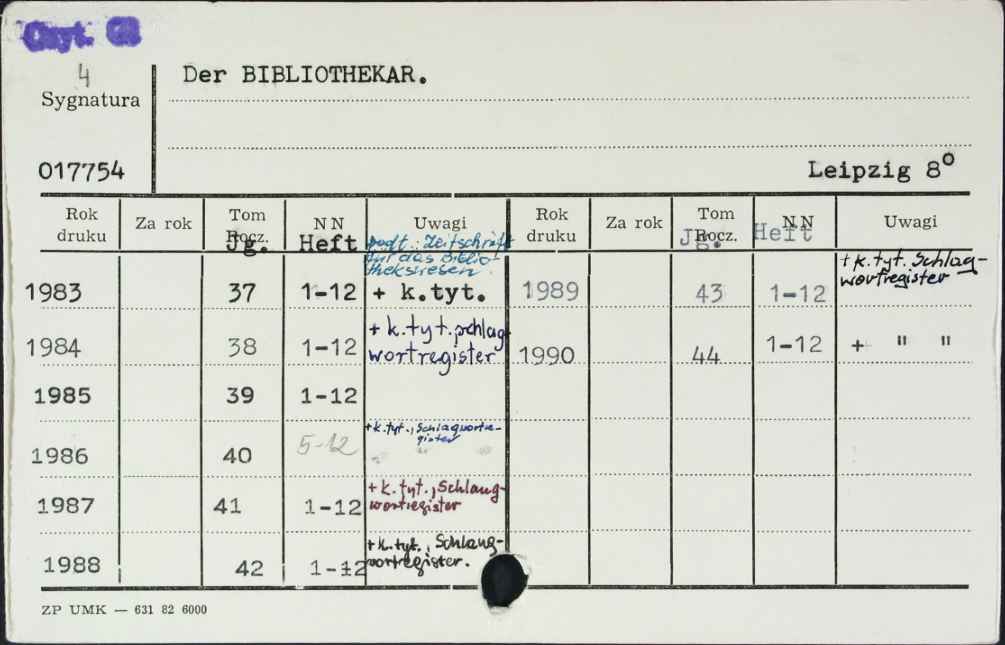 Czyt. GŁ
4
Sygnatura
017754
Der BIBLIOTHEKAR.
Leipzig 8°
Rok druku Za rok Tom Rocz. Jg. NN Heft Uwagi Rok druku Za rok Tom Rocz. Jg. NN Heft Uwagi
podt.: Zeitschrift
für das Biblio-
thekswesen.
1983 37 1-12 + k.tyt. 1989 43 1-12 + k.tyt. Schlag-
wortregister
1984 38 1-12 + k.tyt. schlag
wortregister 1990 44 1-12 + " "
1985 39 1-12
1986 40 5-12 + k.tyt., Schlagwortre-
gister
1987 41 1-12 + k.tyt., Schlang-
wortregister
1988 42 1-12 + k.tyt., Schlang-
wortregister.
ZP UMK — 631 82 6000